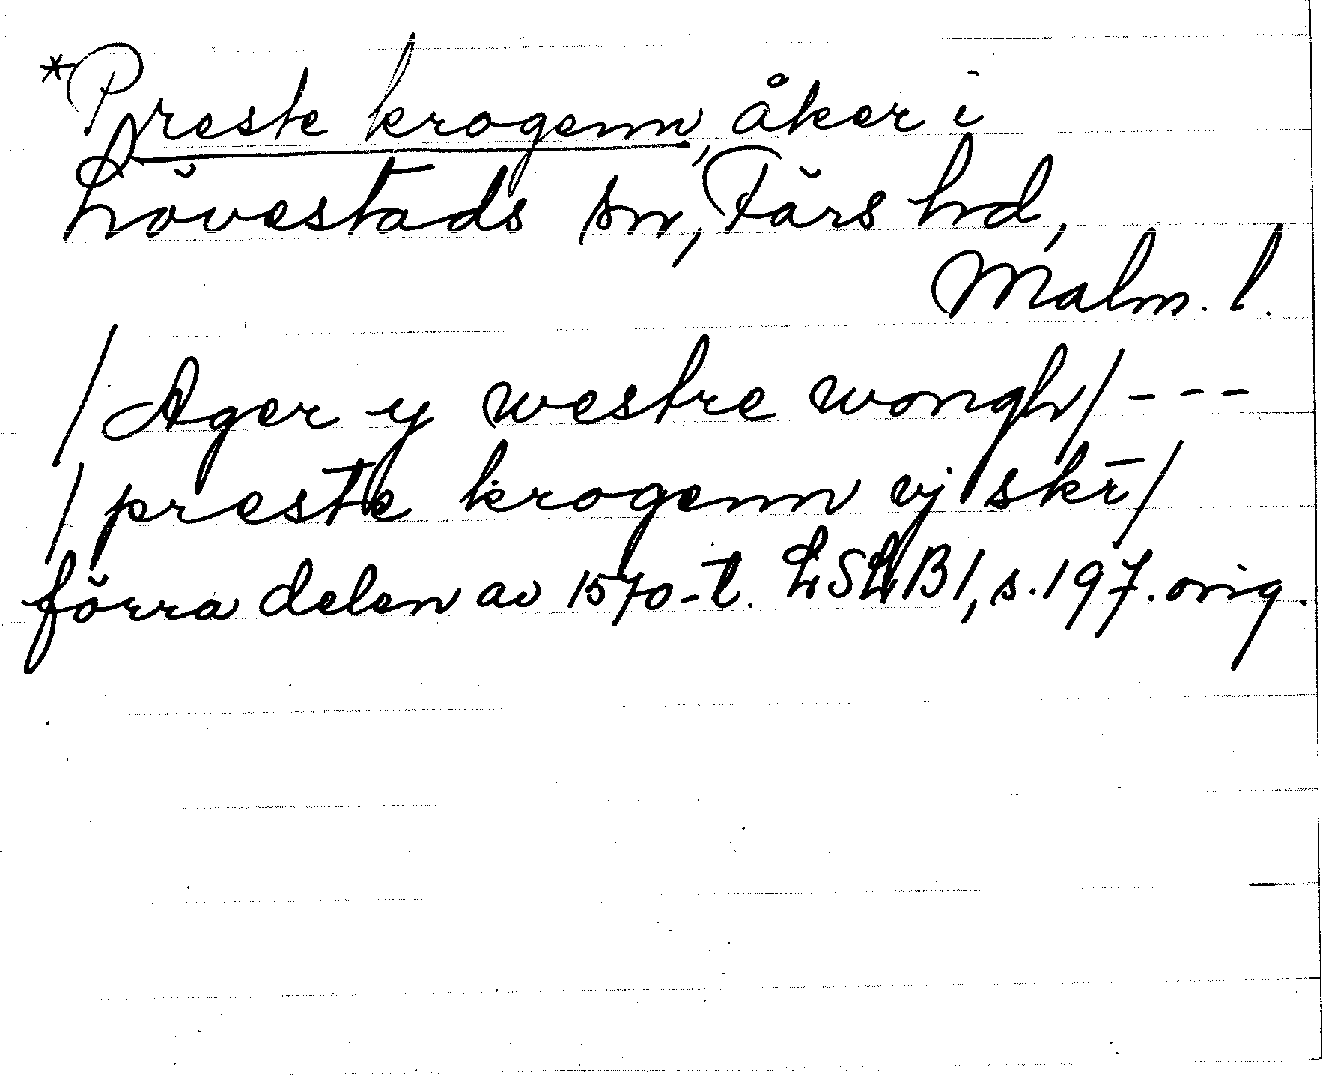 *Preste krogenn, åker i
Lövestads sn, Färs hd,
Malm. l.
/Ager y westre wongh/ - - -
/preste krogenn vj skr̄/
förra delen av 1570-t. LSLB1, s. 197. orig.